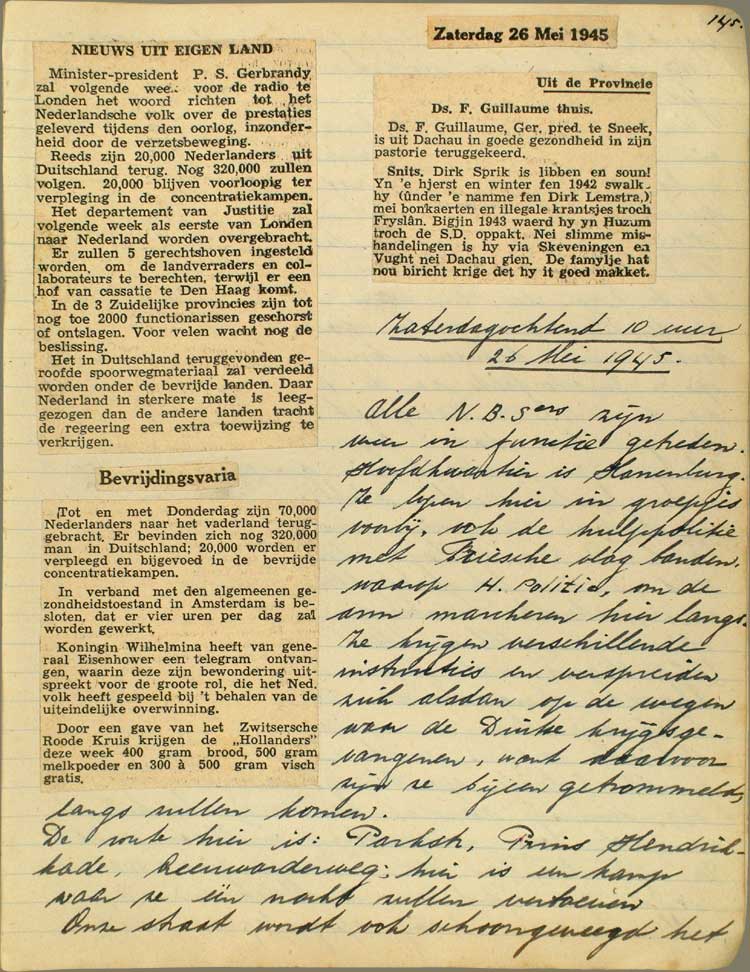 145.
Zaterdag 26 Mei 1945
NIEUWS UIT EIGEN LAND
Minister-president P. S. Gerbrandy
zal volgende wee.. voor de radio te
Londen het woord richten tot het
Nederlandsche volk over de prestaties
geleverd tijdens den oorlog, inzonder-
heid door de verzetsbeweging.
Reeds zijn 20,000 Nederlanders uit
Duitschland terug. Nog 320,000 zullen
volgen. 20,000 blijven voorloopig ter
verpleging in de concentratiekampen.
Het departement van Justitie zal
volgende week als eerste van Londen
naar Nederland worden overgebracht.
Er zullen 5 gerechtshoven ingesteld
worden, om de landverraders en col-
laborateurs te berechten, terwijl er een
hof van cassatie te Den Haag komt.
In de 3 Zuidelijke provincies zijn tot
nog toe 2000 functionarissen geschorst
of ontslagen. Voor velen wacht nog de
beslissing.
Het in Duitschland teruggevonden ge-
roofde spoorwegmateriaal zal verdeeld
worden onder de bevrijde landen. Daar
Nederland in sterkere mate is leeg-
gezogen dan de andere landen tracht
de regeering een extra toewijzing te
verkrijgen.
Bevrijdingsvaria
Tot en met Donderdag zijn 70,000
Nederlanders naar het vaderland terug-
gebracht. Er bevinden zich nog 320,000
man in Duitschland; 20,000 worden er
verpleegd en bijgevoed in de bevrijde
concentratiekampen.
In verband met den algemeenen ge-
zondheidstoestand in Amsterdam is be-
sloten, dat er vier uren per dag zal
worden gewerkt.
Koningin Wilhelmina heeft van gene-
raal Eisenhower een telegram ontvan-
gen, waarin deze zijn bewondering uit-
spreekt voor de groote rol, die het Ned.
volk heeft gespeeld bij 't behalen van de
uiteindelijke overwinning.
Door een gave van het Zwitsersche
Roode Kruis krijgen de „Hollanders”
deze week 400 gram brood, 500 gram
melkpoeder en 300 à 500 gram visch
gratis.
Uit de Provincie
Ds. F. Guillaume thuis.
Ds. F. Guillaume, Ger. pred. te Sneek,
is uit Dachau in goede gezondheid in zijn
pastorie teruggekeerd.
Snits. Dirk Sprik is libben en soun!
Yn 'e hjerst en winter fen 1942 swalk-
hy (ûnder 'e namme fen Dirk Lemstra,)
mei bonkaerten en illegale krantsjes troch
Fryslân. Bigjin 1943 waerd hy yn Huzum
troch de S.D. oppakt. Nei slimme mis-
handelingen is hy via Skeveningen en
Vught nei Dachau gien. De famylje hat
nou biricht krige det hy it goed makket.
Zaterdagochtend 10 uur
26 Mei 1945.
Alle N.B.Sers zijn
weer in functie getreden.
Hoofdkwartier is Hanenburg.
Ze lopen hier in groepjes
voorbij, ook de hulppolitie
met Friesche vlag banden.
waarop H. Politie, om de
arm marcheren hier langs.
Ze krijgen verschillende
instructies en verspreiden
zich alsdan op de wegen
waar de Duitse krijgsge-
vangenen, want daarvoor
zijn ze bijeen getrommeld,
langs zullen komen.
De route hier is: Parkstr, Prins Hendrik-
kade, Leeuwarderweg; hier is een kamp
waar ze één nacht zullen vertoeven
Onze straat wordt ook schoongeveegd het